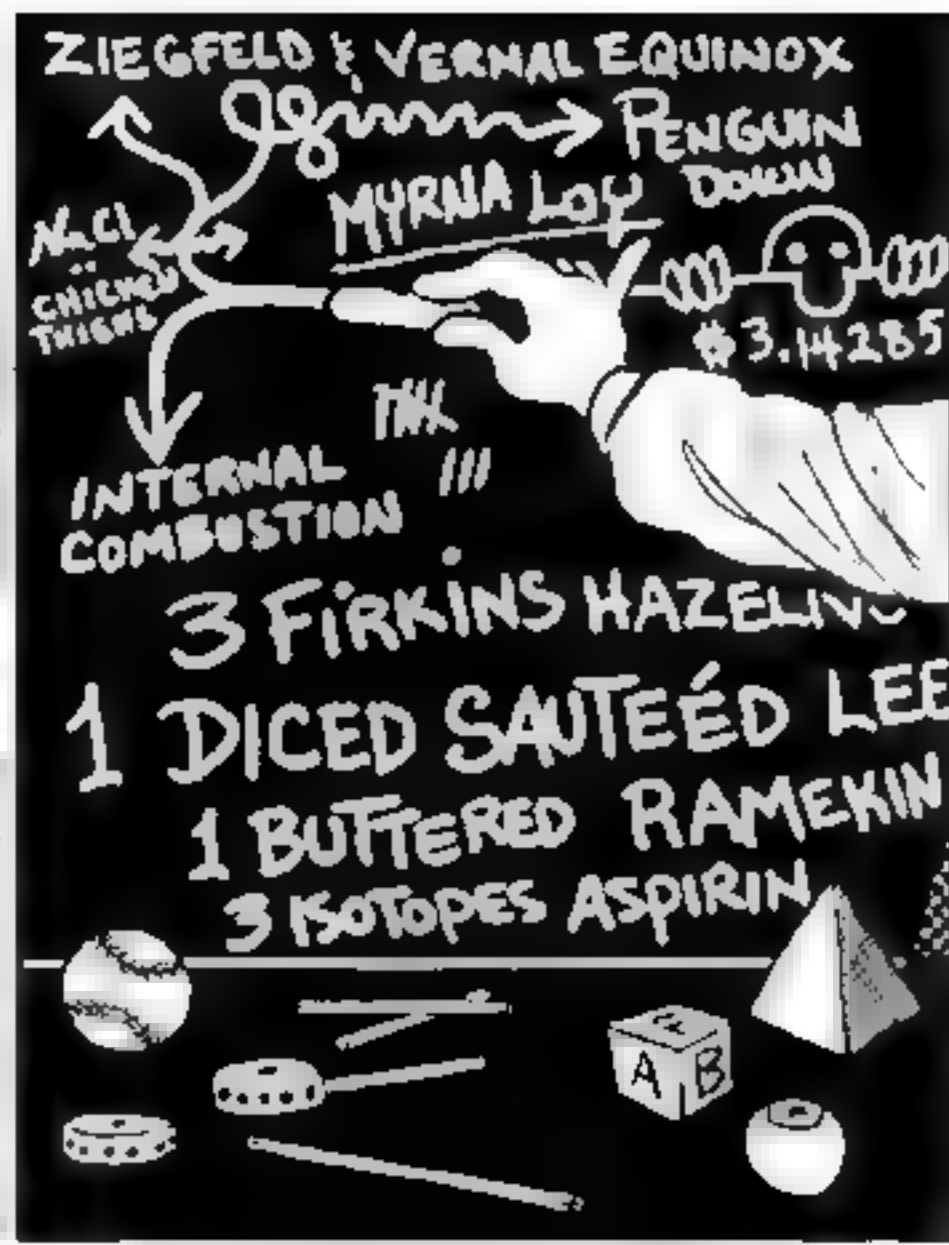 ZIEGFELD & VERNAL EQUINOX
PENGUIN
DOWN
MYRNA LOY
NaCl
CHICKEN
THIGHS
$3.14285
INTERNAL
COMBUSTION
3 FiRKiNS
1 DICED SAUTEÉD LEE
1 BUTTERED RAMEKIN
3 ISOTOPES ASPIRIN
A B